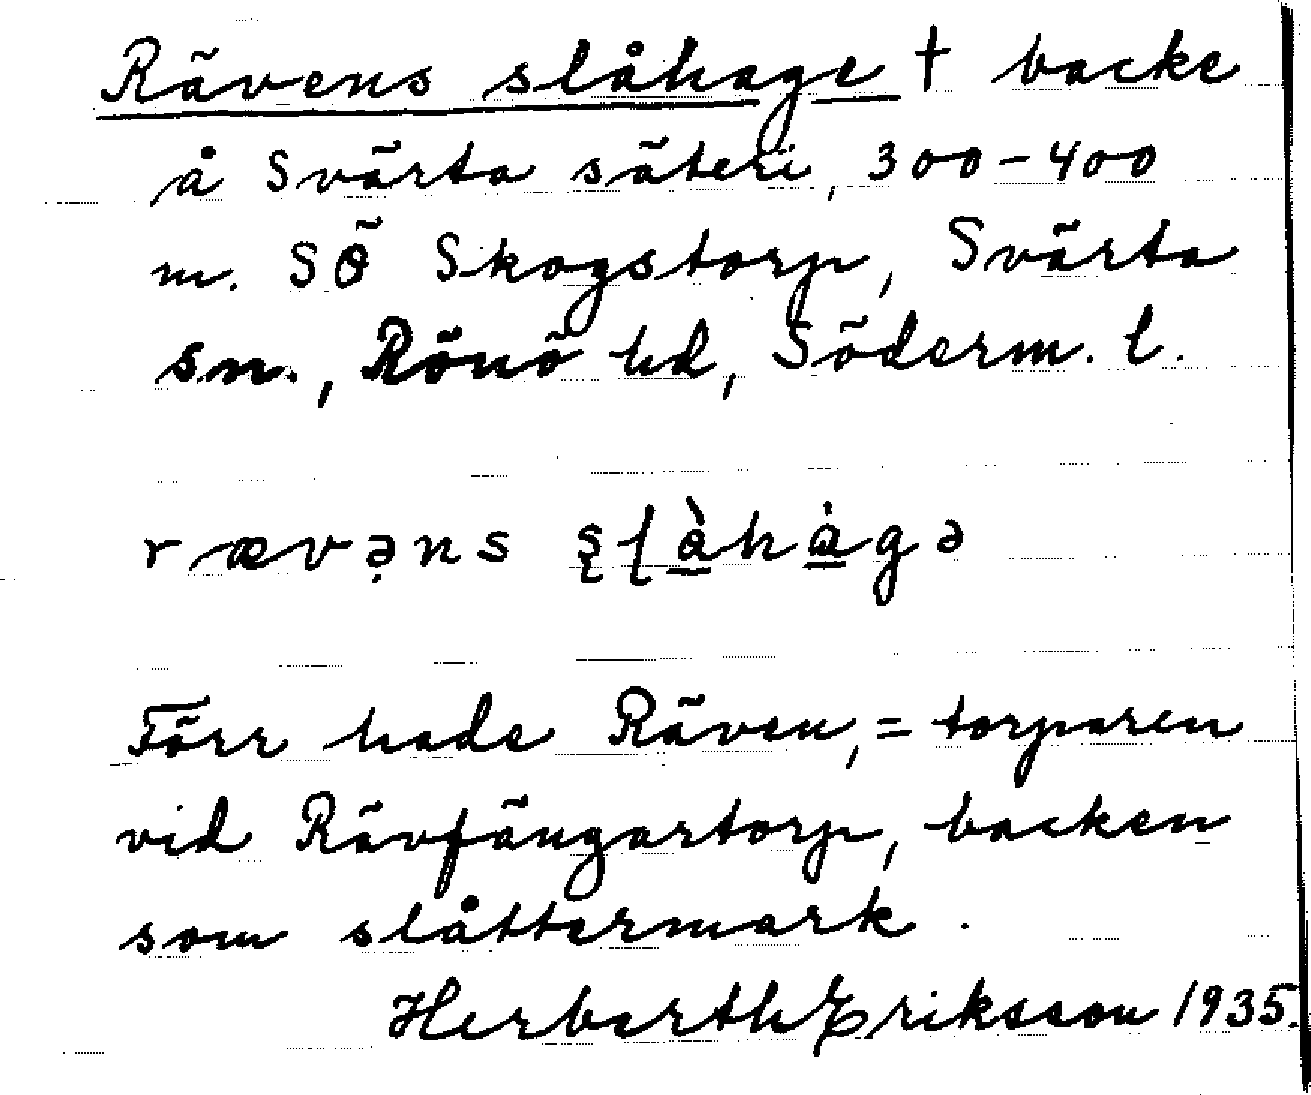 Rävens slåhage † backe
å Svärta säteri, 300-400
m. SÖ Skogstorp, Svärta
sn., Rönö hd, Söderm. l.
rævə̣ns
Förr hade Räven, = torparen
vid Rävfångartorp, backen
som slåttermark.
Herberth Eriksson 1935.